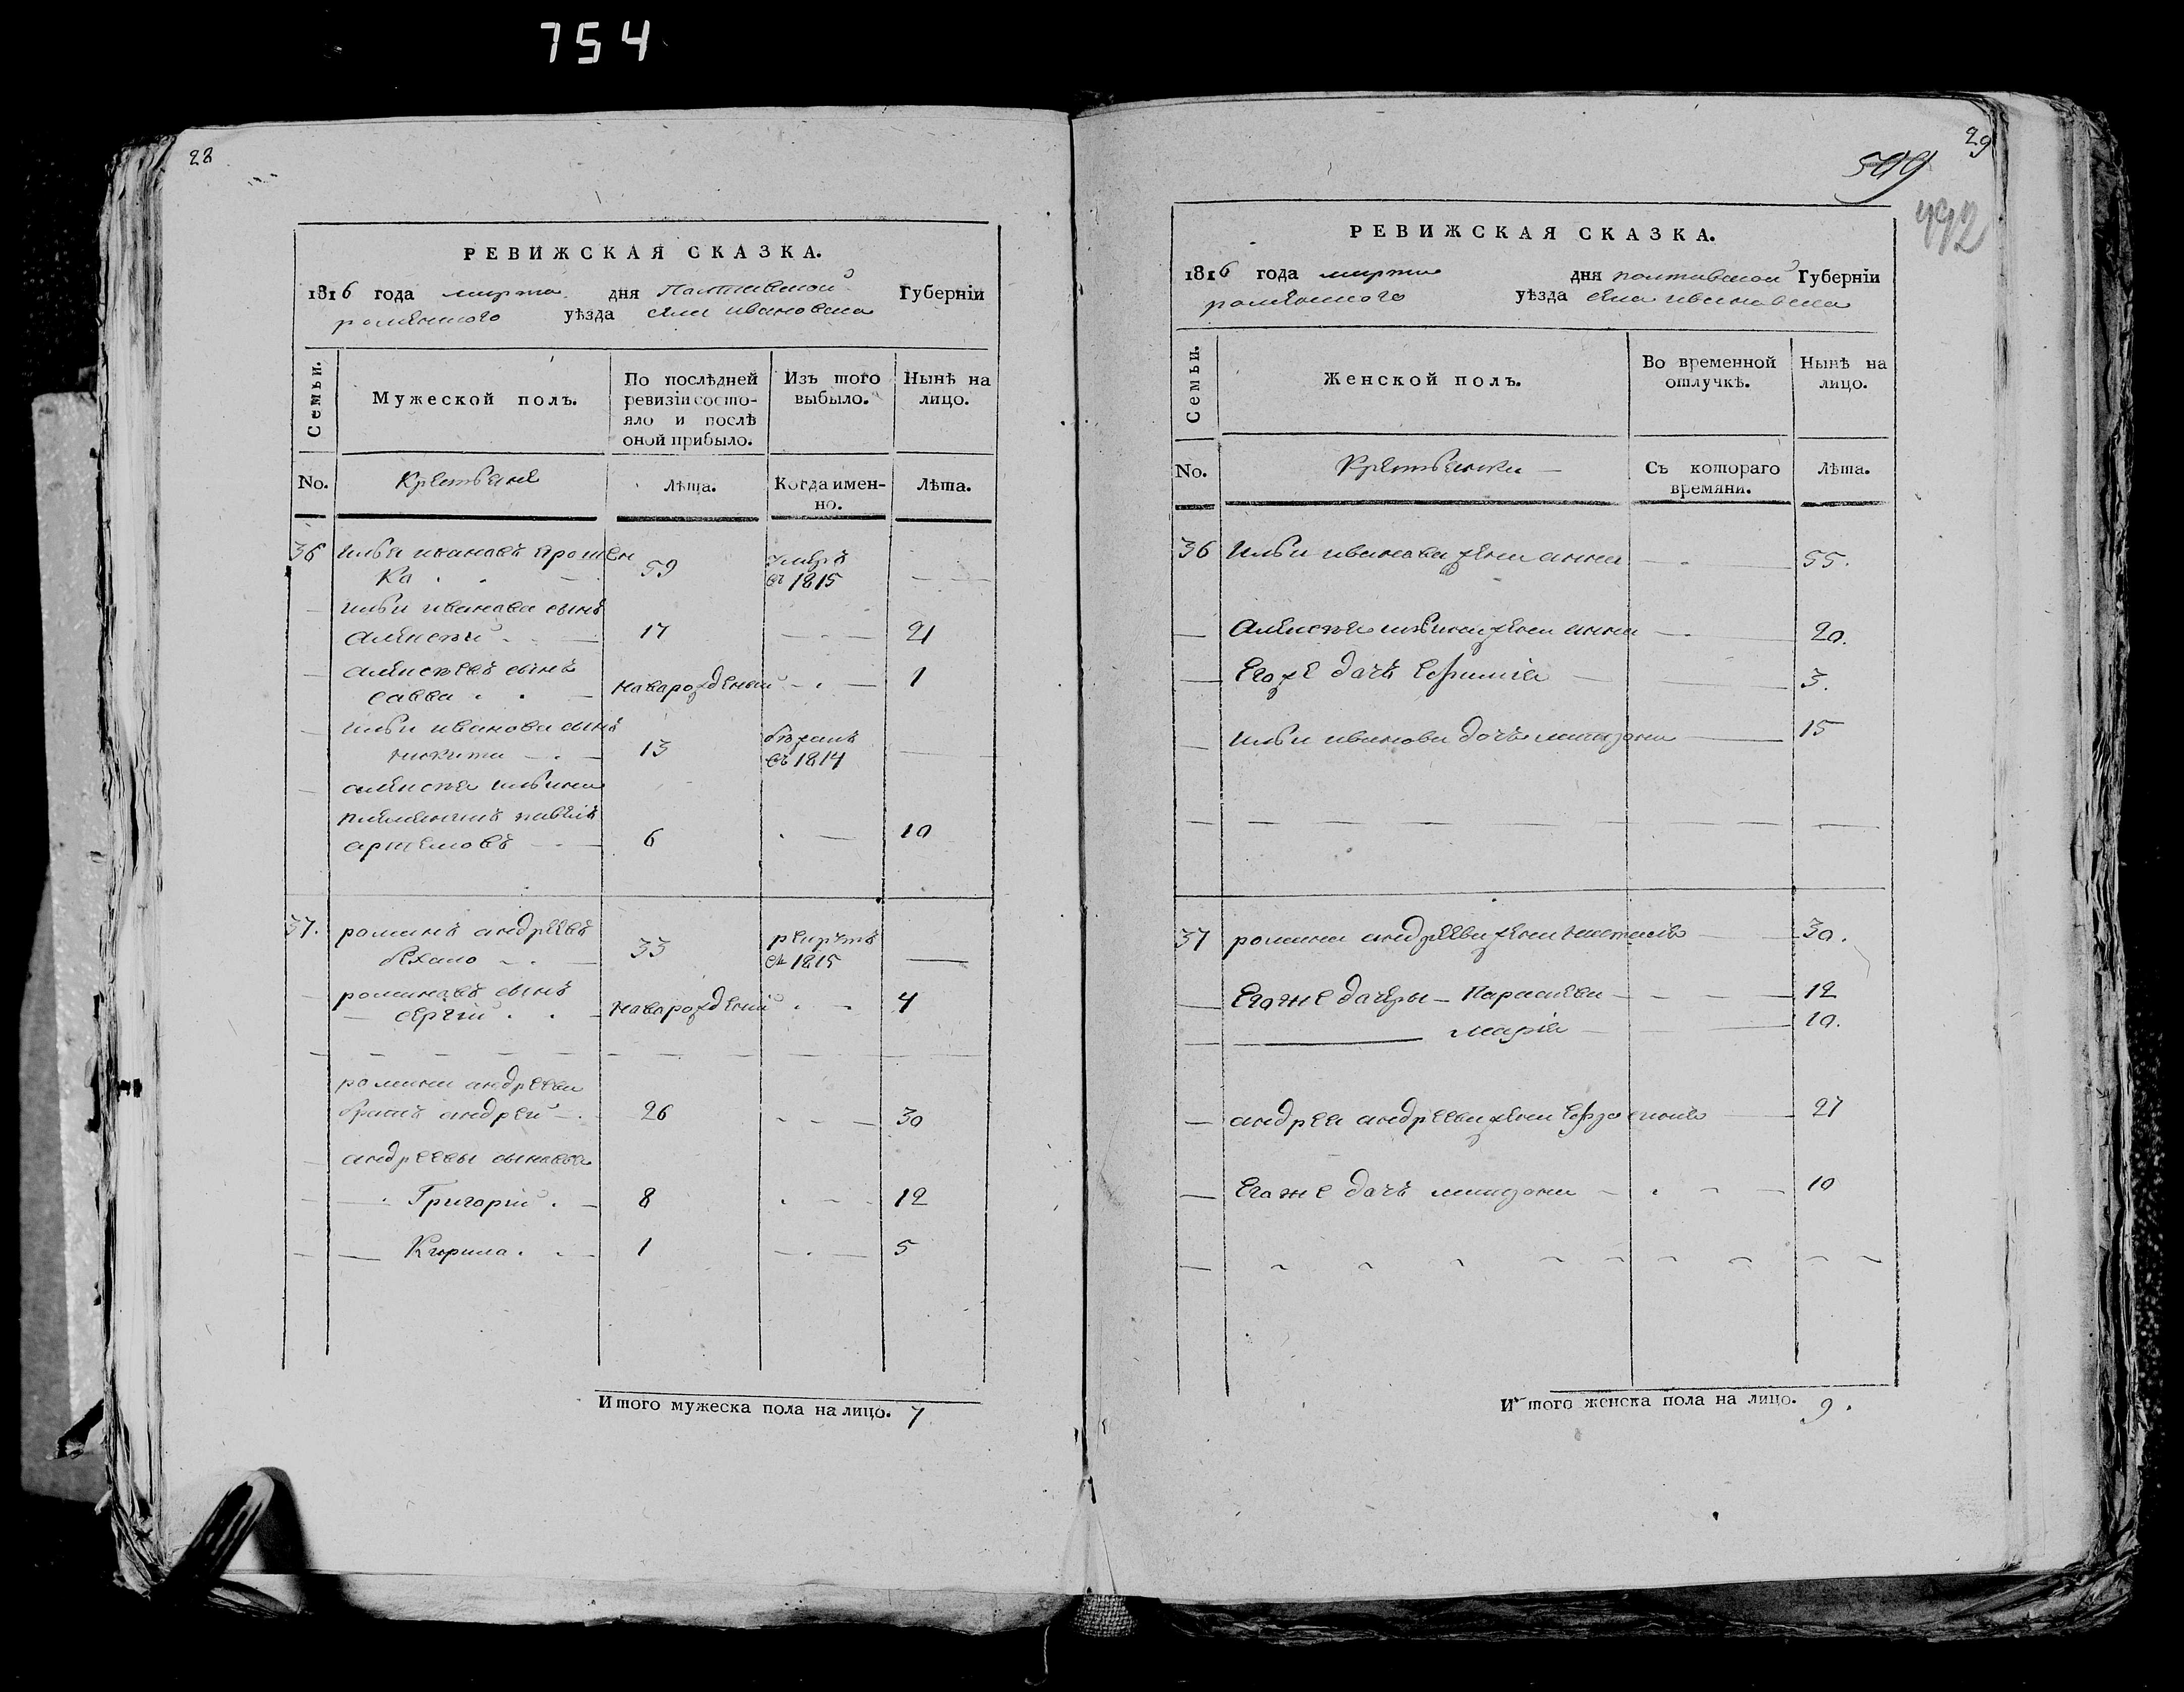 754
28
РЕВИЖСКАЯ СКАЗКА.
1816 года марта дня Полтавской Губерніи
роменского уѣзда села ивановска
Семьи. Мужеской полъ. По послѣдней ревизіи состояло и послѣ оной прибыло. Изъ того выбыло. Нынѣ на лицо.
No. Крестьяне Лѣта. Когда именно. Лѣта.
36 илья ивановъ ярошен
ко 59 умеръ въ 1815
ильи иванова сынъ
алексѣй 17 21
алексѣевъ сынъ
савва новорожденый 1
ильи иванова сынъ
никита 13 бѣжалъ въ 1814
алексѣя ильина
племенникъ павелъ
артемовъ 6 10
37. романъ андреевъ
33 рекрутъ въ 1815
романовъ сынъ
сергій новорожденый 4
романа андреева
братъ андрей 26 30
андреевы сыновья
Григорій 8 12
Кирила 1 5
Итого мужеска пола на лицо. 7
29
599
492
РЕВИЖСКАЯ СКАЗКА.
1816 года марта дня полтавской Губерніи
роменского уѣзда села ивановска
Семьи. Женской полъ. Во временной отлучкѣ. Нынѣ на лицо.
No. Крестьянки Съ котораго времяни. Лѣта.
36 Ильи иванова жена анна 55.
алексѣя ильина жена анна 20.
Егоже дочь Ефимія 3.
ильи иванова дочь матрона 15
37 романа андреева жена настасья 30.
Егоже дочеры Параскева 12
марія 10.
андрея андреева жена Ефросинья 27
Егоже дочь матрона 10
Итого женска пола на лицо. 9.